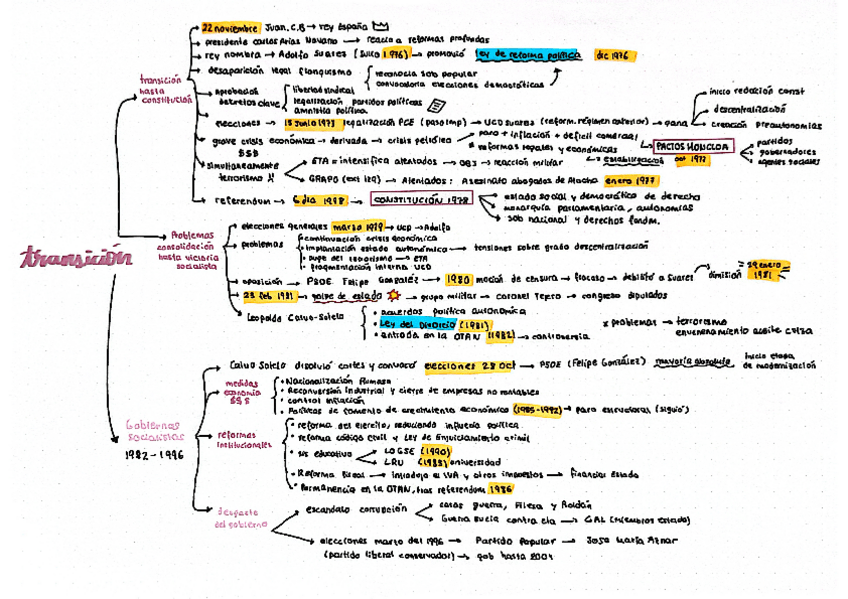 22 noviembre Juan. C.B → rey España
presidente carlos Arias Navarro → reacio a reformas profundas
rey nombra → Adolfo Suarez (Julio 1976) → promovió ley de reforma política dic 1976
desaparición legal franquismo
reconocía sob popular
convocatoria elecciones democráticas
transición hasta constitución
aprobación decretos clave
libertad sindical
legalización partidos políticos
amnistía política
elecciones → 15 Junio 1977 legalización PCE (paso imp) → UCD Suarez (reform. régimen anterior) → gana
inicio redacción const
descentralización
creación preautonomías
grave crisis económica → derivada → crisis petrólera
$$$
paro + inflación + deficit comercial
* reformas legales y económicas
→ estabilización oct 1977
PACTOS MONCLOA
partidos
gobernadores
agentes sociales
simultáneamente terrorismo
ETA = intensifica atentados → 083 → reacción militar
GRAPO (ext izq) → Atentados: Asesinato abogados de Atocha enero 1977
referendum → 6 dic 1978 → CONSTITUCIÓN 1978
estado social y democrático de derecho
monarquía parlamentaria, autonomías
sob nacional y derechos fundm.
transición
Problemas consolidación hasta victoria socialista
elecciones generales marzo 1979 → UCD → Adolfo
problemas
continuación crisis económica
implantación estado autonómico → tensiones sobre grado descentralización
auge del terrorismo → ETA
fragmentación interna UCD
oposición → PSOE Felipe González → 1980 moción de censura → fracaso → debilitó a Suarez
dimisión 29 enero 1981
23 feb 1981 → golpe de estado → grupo militar → coronel Tejero → congreso diputados
Leopoldo Calvo-Sotelo
acuerdos política autonómica
Ley del Divorcio (1981)
entrada en la OTAN (1982) → controversia
* problemas → terrorismo
envenenamiento aceite colza
Gobiernos socialistas
1982-1996
Calvo Sotelo disolvió cortes y convocó elecciones 28 oct → PSOE (Felipe González) mayoría absoluta
Inicio etapa de modernización
medidas economía
$$$
• Nacionalización Rumasa
• Reconversión Industrial y cierre de empresas no rentables
• control inflación
• Políticas de fomento de crecimiento económico (1985-1992) → paro estructural (siguió)
reformas institucionales
• reforma del ejercito, reduciendo influencia política
• reforma código civil y Ley de Enjuiciamiento criminal
• sis educativo
LOGSE (1990)
LRU (1983) universidad
• Reforma fiscal → introdujo el IVA y otros impuestos → financiar estado
• Permanencia en la OTAN, tras referendum 1986
desgaste del gobierno
escandalo corrupción
casos guerra, Filesa y Roldán
Guerra sucia contra eta → GAL (miembros estado)
elecciones marzo del 1996 → Partido Popular → Jose María Aznar
(partido liberal conservador) → gob hasta 2004